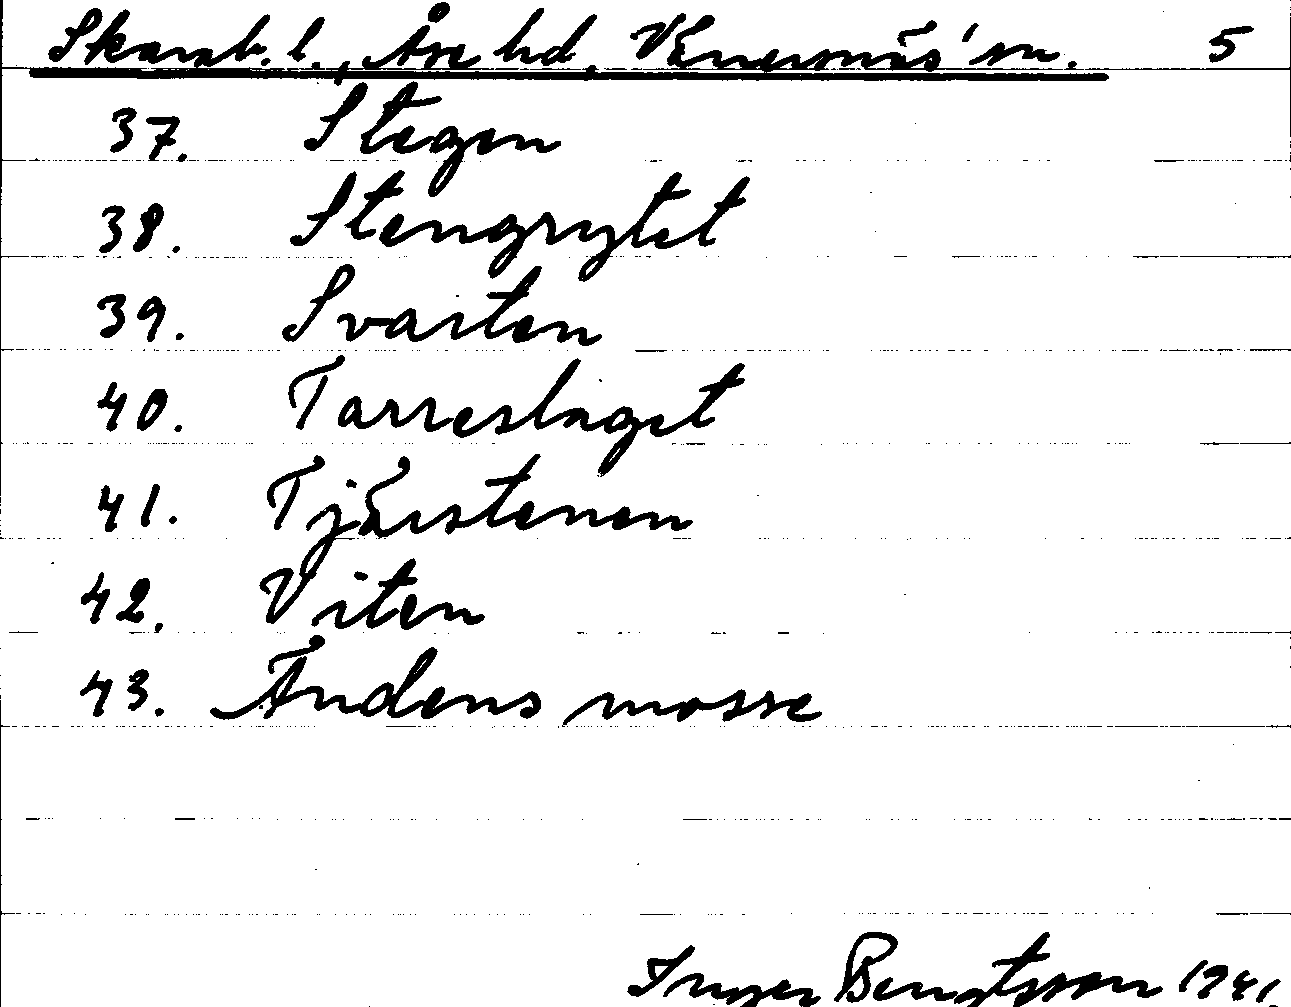 Skarab. l., Åse hd, Vänersnäs' sn. 5
37. Stegen
38. Stengrytet
39. Svarten
40. Tarreslaget
41. Tjärstenen
42. Viten
43. Åndens mosse
Inger Bengtsson 1941.